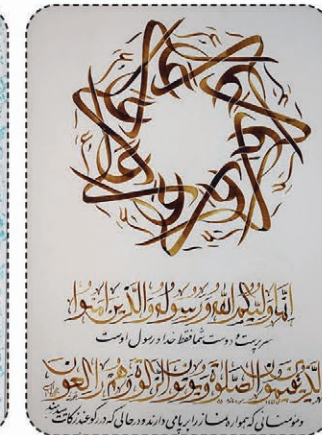 إِنَّمَا وَلِيُّكُمُ اللَّهُ وَرَسُولُهُ وَالَّذِينَ آمَنُوا
سرپرست و دوست شما فقط خدا و رسول اوست
الَّذِينَ يُقِيمُونَ الصَّلَوةَ وَيُؤْتُونَ الزَّكَوةَ وَهُمْ رَاكِعُونَ
و مؤمنانی که همواره نماز را برپا می دارند و در حالی که در رکوعند زکات می دهند